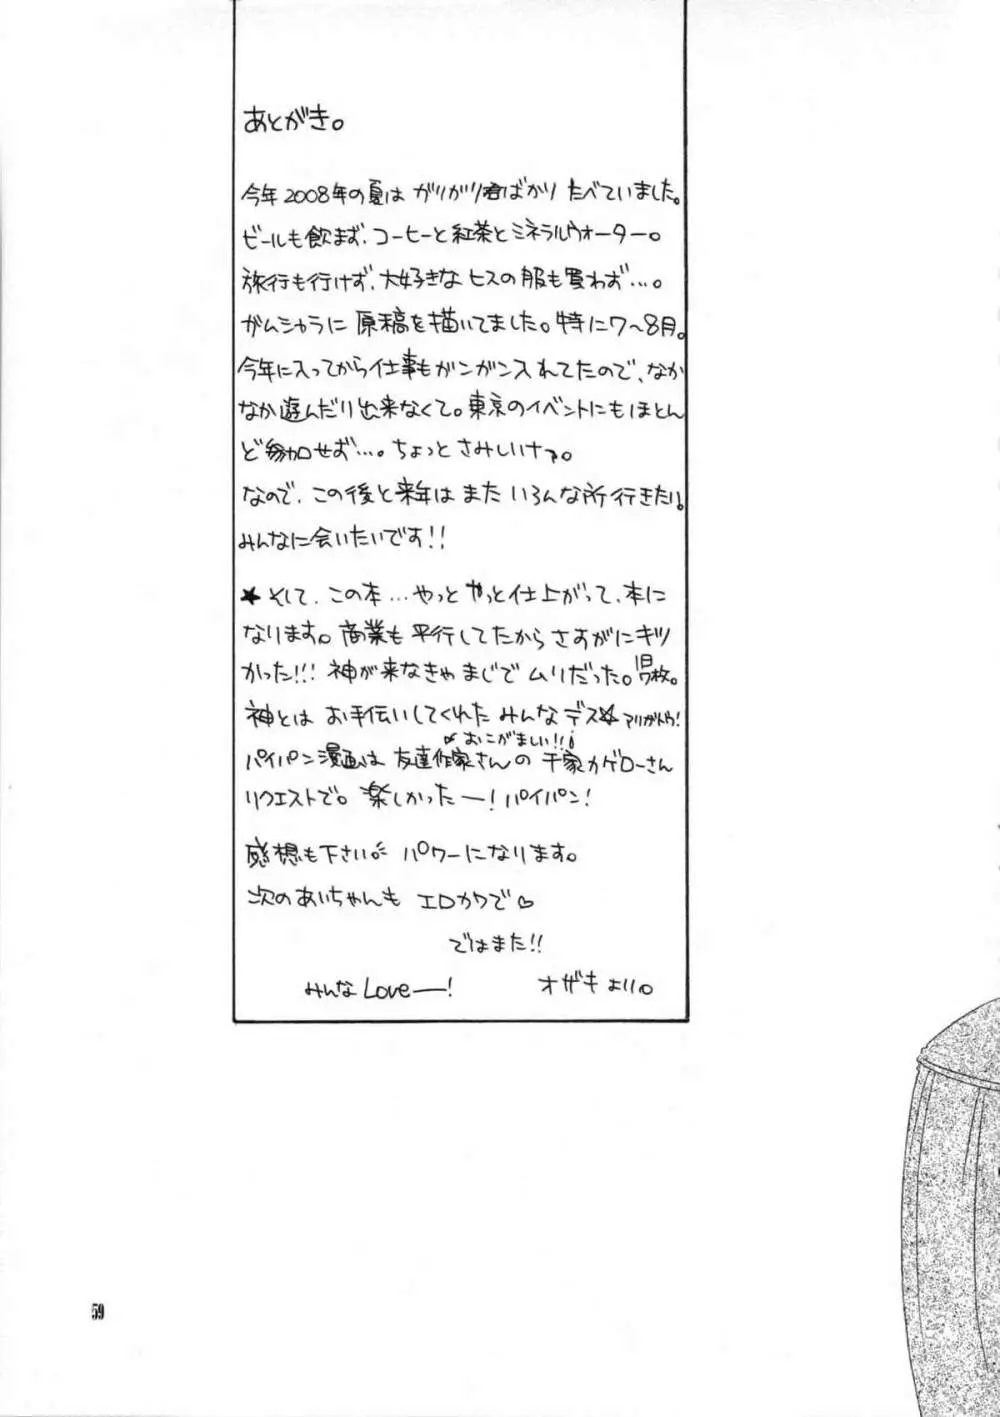 あとがき。
今年2008年の夏は ガリガリ君ばかり たべていました。
ビールも飲まず、コーヒーと紅茶とミネラルウォーター。
旅行も行けず、大好きな ヒスの服も買わず…。
がムシャラに 原稿を描いてました。特に7〜8月。
今年に入ってから仕事もガンガン入れてたので、なか
なか遊んだり出来なくて。東京のイベントにもほとん
ど参加せず…。ちょっと さみしいナァ。
なので、この後と来年は また いろんな所行きたい。
みんなに会いたいです!!
★そして、この本…やっと やっと仕上がって、本に
なります。商業も 平行してたから さすがにキツ
かった!!! 神が来なきゃ まじで ムリだった。1日7枚。
神とは お手伝いしてくれた みんなデス★ アリガトウ!
おこがましい!!
パイパン漫画は 友達作家さんの 千家カゲローさん
リクエストで。楽しかったー! パイパン!
感想も下さい。パワーになります。
次のあいちゃんも エロカワで♡
ではまた!!
みんな Love ー!
オザキより。
59